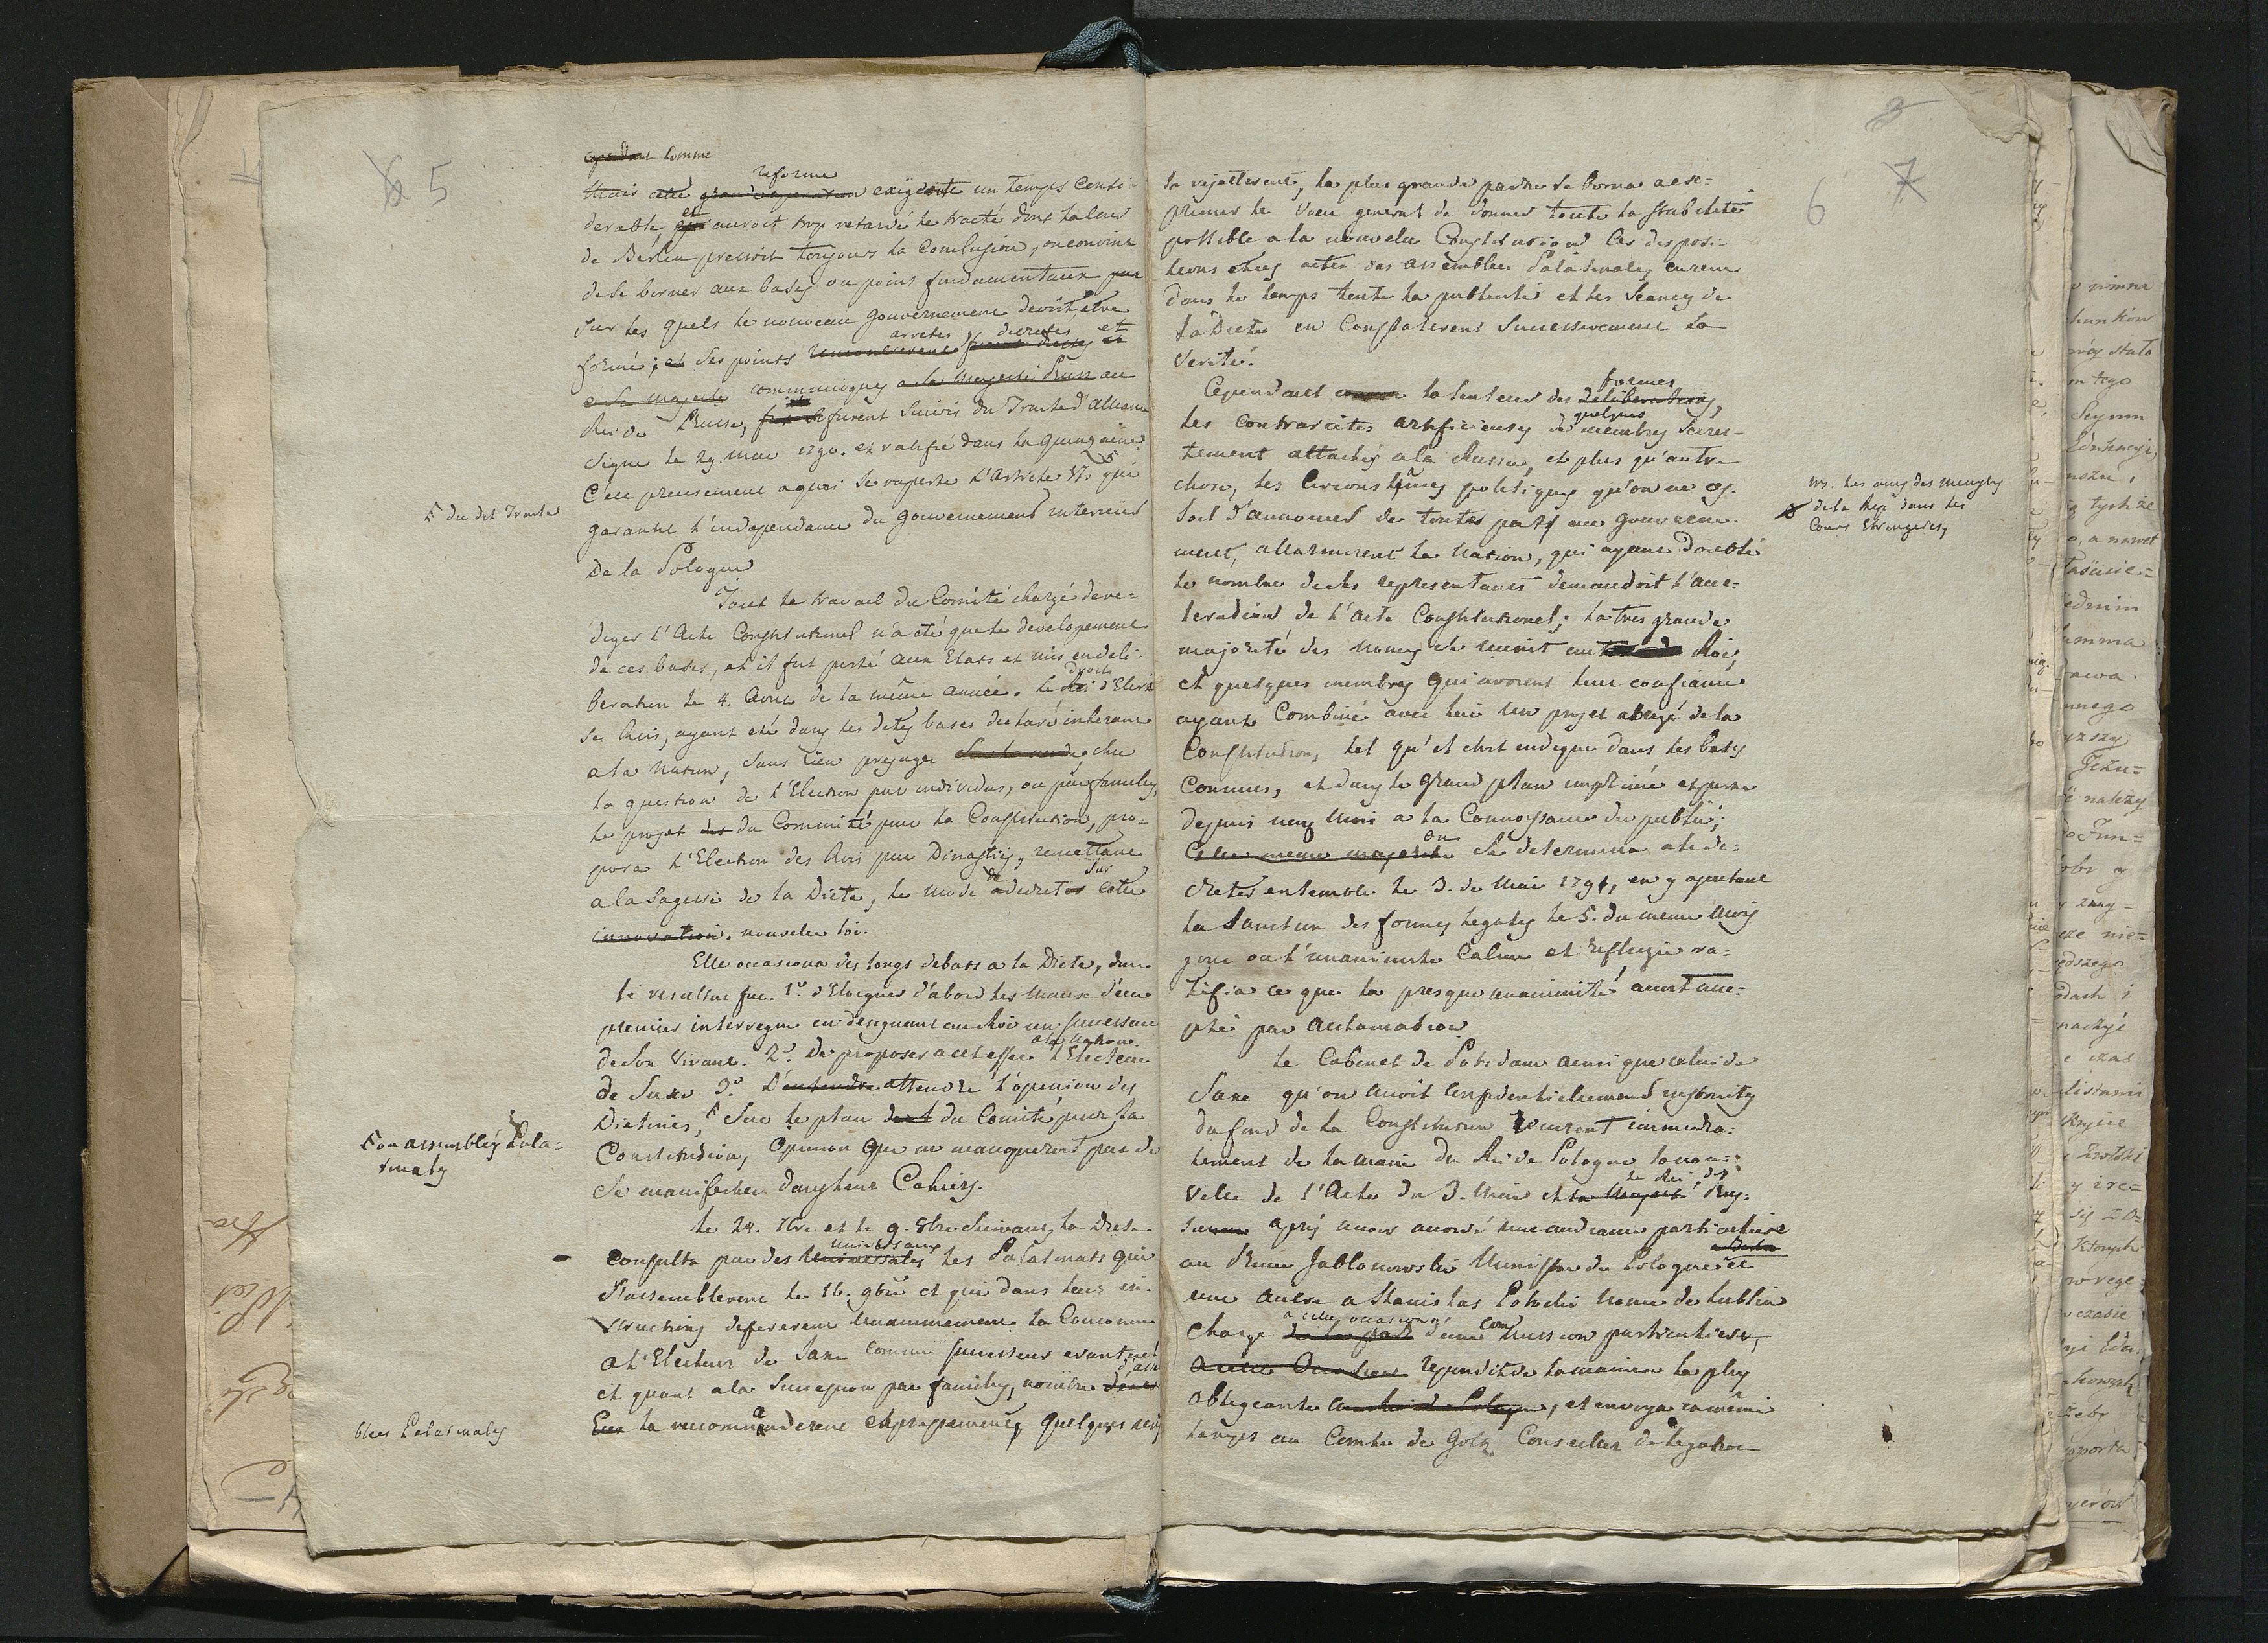 5
comme
reforme
Mais cette exigeoit un temps consi-
derable, et auroit trop retardé le traité dont la Cour
de Berlin pressoit toujours la Conclusion, on convint
de se borner aux bases ou points fondamentaux
sur les quels le nouveau gouvernement devoit etre
arretes decretés et
formé; Ces points
communiques au
Roi de Prusse, furent suivis du Traité d'alliance
signé le 29. Mars 1790. et ratifié dans la quinzaine
C'est precisement a quoi se raporte l'Article VI. qui
du dit Traité
garantit l'independance du gouvernement interieur
De la Pologne
Tout le travail du Comité chargé de re-
diger l'Acte Constitutionel n'a eté que le developement
de ces bases, et il fut porté aux Etats et mis en deli-
droit
beration le 4. Aout de la même année. le d'Elire
ses Rois, ayant eté dans les dites bases declaré inherent
a la Nation, sans rien prejuger sur
la question de l'Election par individus, ou par familles,
le projet du Committé pour la Constitution, pro-
posa l'Election des Rois par Dinasties, remettant
a la Sagesse de la Diete, le mode de decreter sur cette
nouvelle loi.
Elle occasiona des longs debats a la Diete, dont
le resultat fut. 1° d'Eloigner d'abord les maux d'un
premier interregne en designant au Roi un successeur
de son vivant. 2° De proposer a cet effet a la Nation l'Electeur
de Saxe 3° D'attendre l'opinion des
Dietines, sur le plan du Comité pour la
ou assemblées Pala-
tinales
Constitution, Opinion qui ne manqueroit pas de
se manifester dans leurs Cahiers.
le 28. 7bre et le 9. 8bre suivant, la Diete
universaux
consulta par des les Palatinats qui
s'assemblerent le 16. 9bre et qui dans leurs in-
structions defererent unanimement la Couronne
a l'Electeur de Saxe comme successeur eventuel
et quant a la succession par familles, nombre d'ass
la recommanderent expressement, quelques unes
blées Palatinales
6 7
la rejetterent, la plus grande partie se borna a ex-
primer le voeu general de donner toute la stabilité
possible a la nouvelle Constitution Ces disposi-
tions et les actes des assemblées Palatinales, eurent
dans le temps toute la publicité et les seances de
la Diete en Constaterent successivement la
Verité.
Cependant la lenteur des formes
les contrarietes artificieuses de quelques membres secre-
tement attachés a la Russie, et plus qu'autre
chose, les circonstances politiques qu'on ne ces-
soit d'annoncer de toutes parts au gouverne-
ment, allarmerent la Nation, qui ayant doublé
le nombre de ses representants demandoit l'acce-
leration de l'Acte Constitutionel; la tres grande
majorité des Nonces se reunit au Roi,
et quelques membres qui avoient leur confiance
ayant Combiné avec lui un projet abregé de la
Constitution, tel qu'il etoit indiqué dans les bases
Connues, et dans le grand plan imprimé expose
depuis neuf Mois a la Connoissance du public;
on se determina a le de-
creter ensemble le 3. de Mai 1791, en y ajoutant
la Sanction des formes legales le 5. du meme Mois
jour ou l'unanimité calme et reflechie ra-
tifia ce que la presque unanimité avoit acce-
pté par acclamation
le Cabinet de Potsdam ainsi que celui de
Saxe qu'on avoit confidentiellement instruits
du fond de la Constitution recurent immedia-
tement de la main du Roi de Pologne la nou-
velle de l'Acte du 3. Mai et le Roi de Prus-
se apres avoir accordé une audience particuliere
au Prince Jablonowski Ministre de Pologne et
une autre a Stanislas Potocki Nonce de Lublin
à cette occasion
chargé d'une Commission particuliere,
repondit de la maniere la plus
obligeante, et envoya en même
temps au Comte de Goltz Conseiller de legation
NB. les avis des Ministres
de la Rep. dans les
Cours Etrangeres,